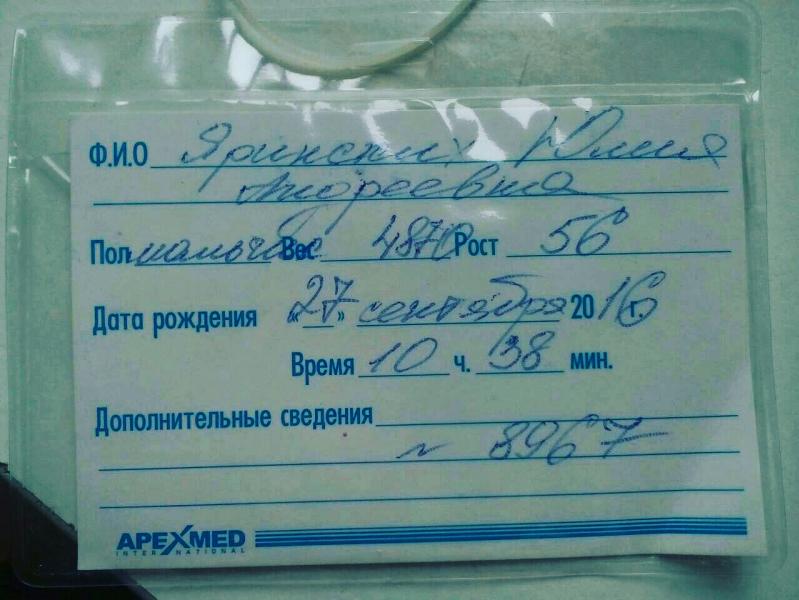 Ф.И.О Яринских Юлия
Андреевна
Пол мальчик Вес 4870 Рост 56
Дата рождения «27» сентября 2016 г.
Время 10 ч. 38 мин.
Дополнительные сведения
~ 8967
APEXMED
INTERNATIONAL